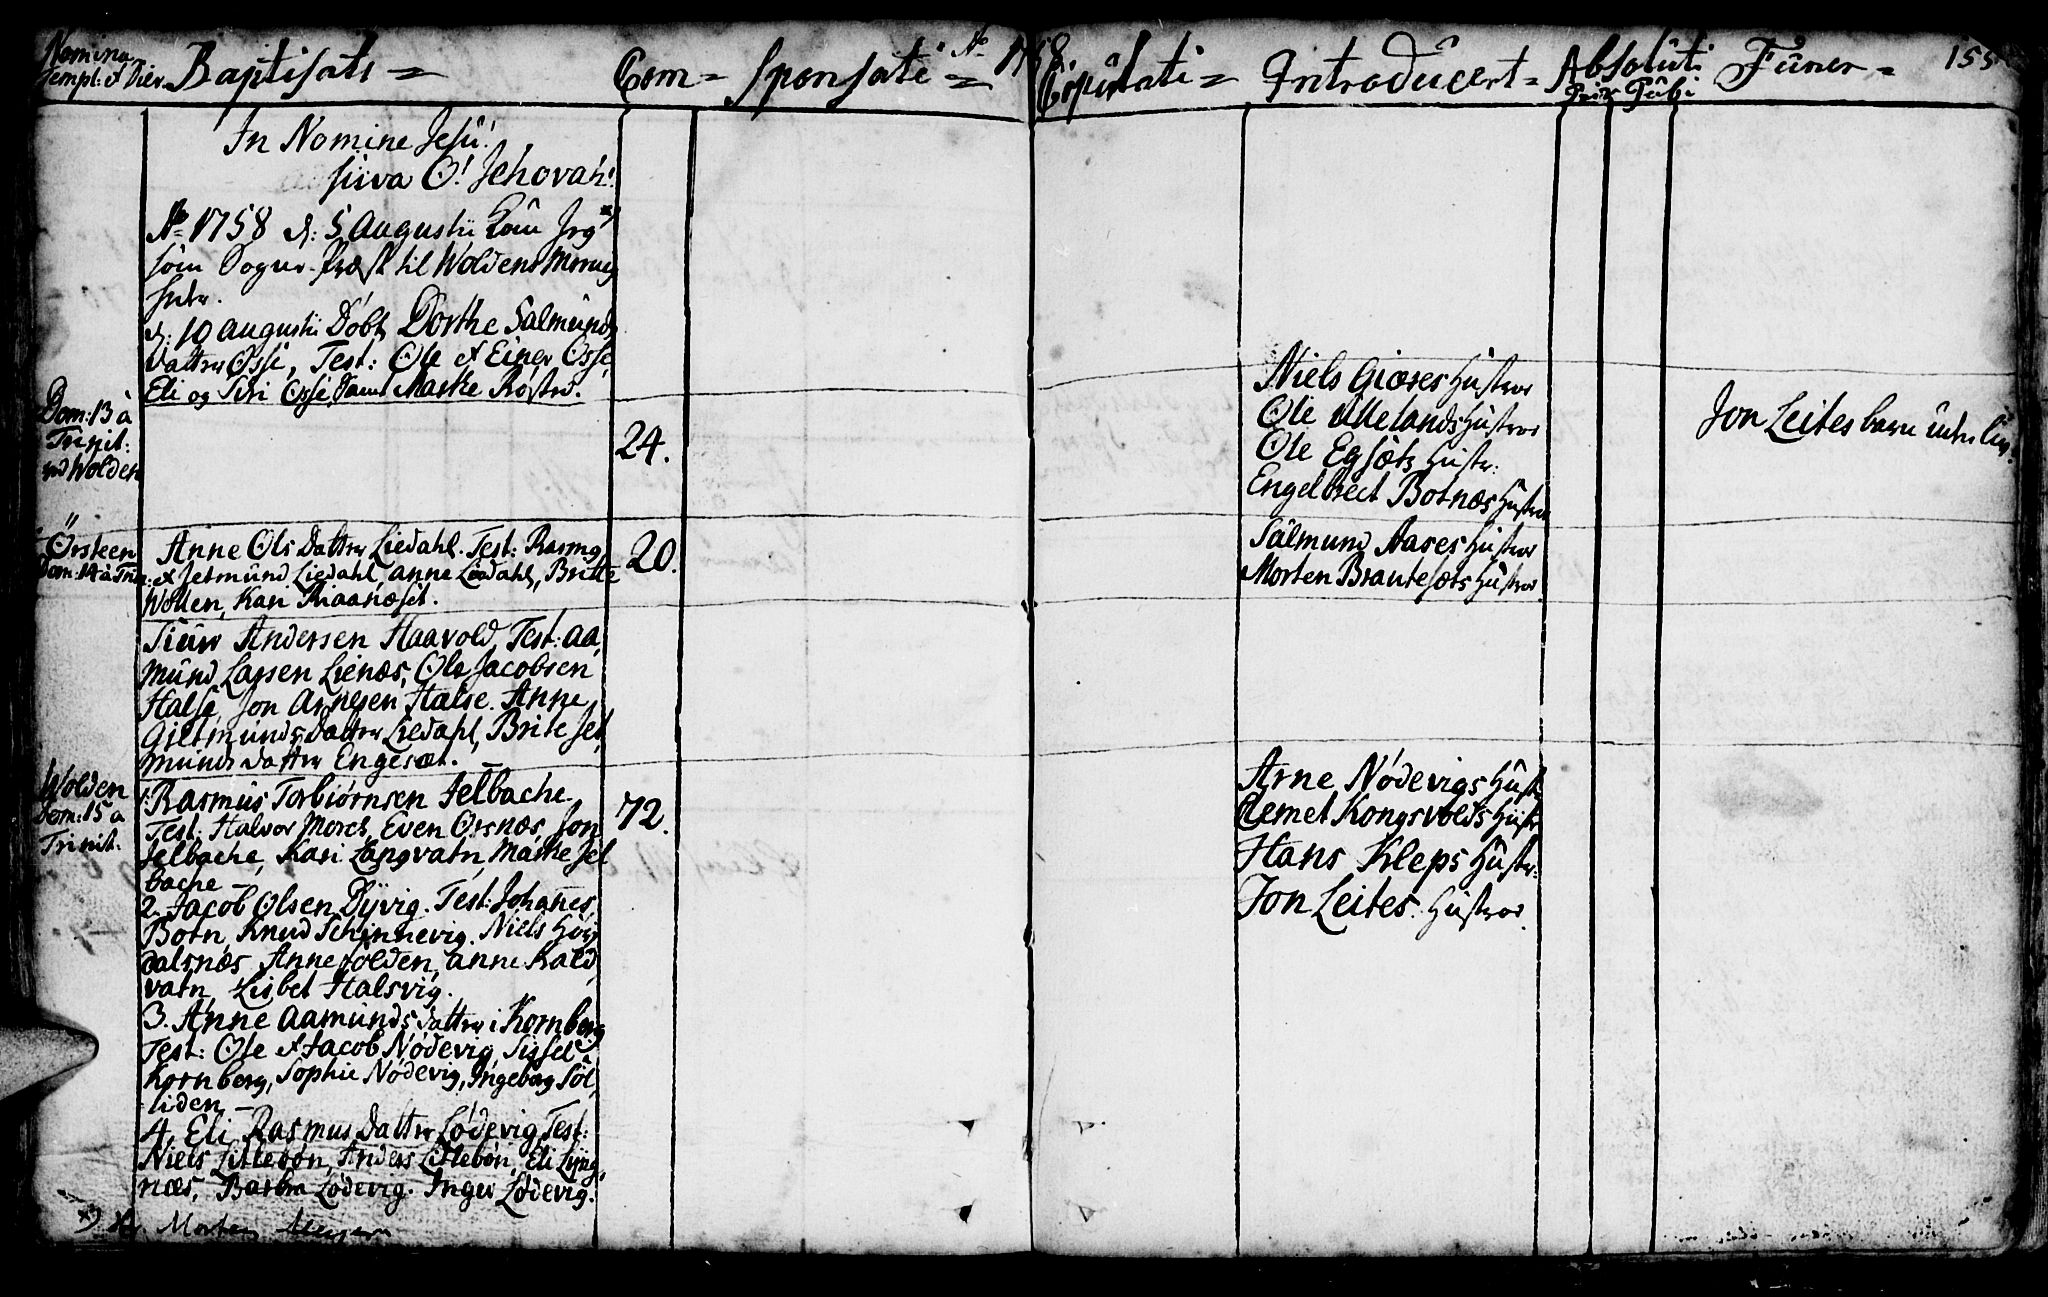 Nomina
Templ: et Dier.
Baptisati =
Com =
Sponsati =
Ao 1758.
Copulati =
Introducert =
Absoluti
Priv Publ
Funer =
155
In Nomine Jesu!
juva O! Jehovah!
Ao 1758 d: 5 Augustii kom Jeg
som Sogne-Præst til Woldens
d: 10 Augustii Døbt Dorthe Salmunds
datter Osse, Test: Ole et Einer Osse,
Eli og Siri Osse, samt Marthe
Dom: 13 à
Trinit:
Wolden
24.
Niels Giæres Hustroe
Ole Melands Hustroe
Ole Egsæts Hustr:
Engelbrect Botnæs Hustroe
Jon Leites barn
Ørsteen
Dom: 14 à Trin:
Anne Ols Datter Liedahl. Test: Rasmus
et Jetmund Liedahl, Anne Liedahl, Britte
Wollen, Kari
20.
Salmund Aases Hustroe
Morten Brautesæts Hustroe
Andersen Haavold, Test: Aa,
mund Larsen Lienæs, Ole Jacobsen
Halse, Jon Arnesen Halse. Anne
Gietmunds Datter Liedahl, Brite Jet,
munds datter Engeset.
Wolden
Dom: 15 à
Trinit.
1: Rasmus Torbiørnsen Jelbache
Test: Halvor Morch, Even Ørsnæs, Jon
Jelbache, Kari Langvatn, Marthe Jel
bache
72.
Arne Nødevigs Hustr
Clemet Kongsvolds Hustr
Hans Kleps Hustr:
Jon Leites Hustroe.
2. Jacob Olsen Dyvig. Test: Johanes
Botn, Knud Schinnevig. Niels Høy
dalsnæs, Anne Folden, Anne Kald,
vatn, Lisbet Halsvig.
3. Anne Aamunds datter i Kornberg
Test: Ole et Jacob Nødevig, Sissel
Kornberg, Sophie Nødevig, Ingeborg Søl,
liden
4. Eli Rasmus Datter Lødevig Test:
Niels Littlebøn, Anders Littlebøn, Eli Lyng,
næs, Barbra Lødevig. Inger Lødevig.
Morten